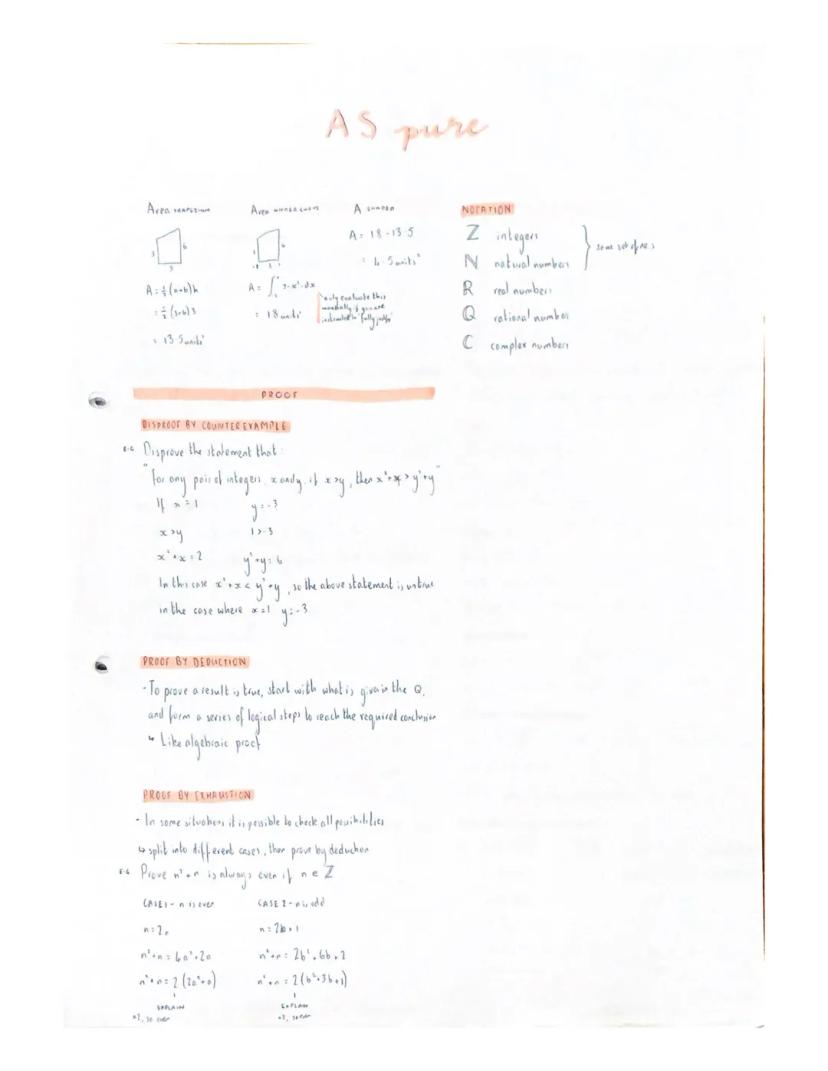 AS pure
Area TRAPEZIUM
3
6
3
A = ½(a+b)h
= ½(3+6)3
= 13.5 units²
Area UNDER CURVE
A =
= 18 units²
only evaluate this
manually if you are
instructed to 'fully justify'
A SHADED
A = 18 - 13.5
= 4.5 units²
NOTATION
ℤ integers
ℕ natural numbers
ℝ real numbers
ℚ rational number
ℂ complex numbers
PROOF
DISPROOF BY COUNTEREXAMPLE
E.G Disprove the statement that:
"for any pair of integers, x and y, if x>y, then x²+x > y²+y"
If x = 1 y = -3
x > y 1 > -3
x² + x = 2 y² + y = 6
In this case x²+x < y²+y, so the above statement is untrue
in the case where x=1 y=-3
PROOF BY DEDUCTION
- To prove a result is true, start with what is given in the Q,
and form a series of logical steps to reach the required conclusion
↳ Like algebraic proof
PROOF BY EXHAUSTION
- In some situations it is possible to check all possibilities
↳ split into different cases, then prove by deduction
E.G Prove n²+n is always even if n ∈ ℤ
CASE 1 - n is even
n = 2a
n²+n = 4a²+2a
n²+n = 2(2a²+a)
EXPLAIN
×2, so even
CASE 2 - n is odd
n = 2b+1
n²+n = 2b²+6b+2
n²+n = 2(b²+3b+1)
EXPLAIN
×2, so even